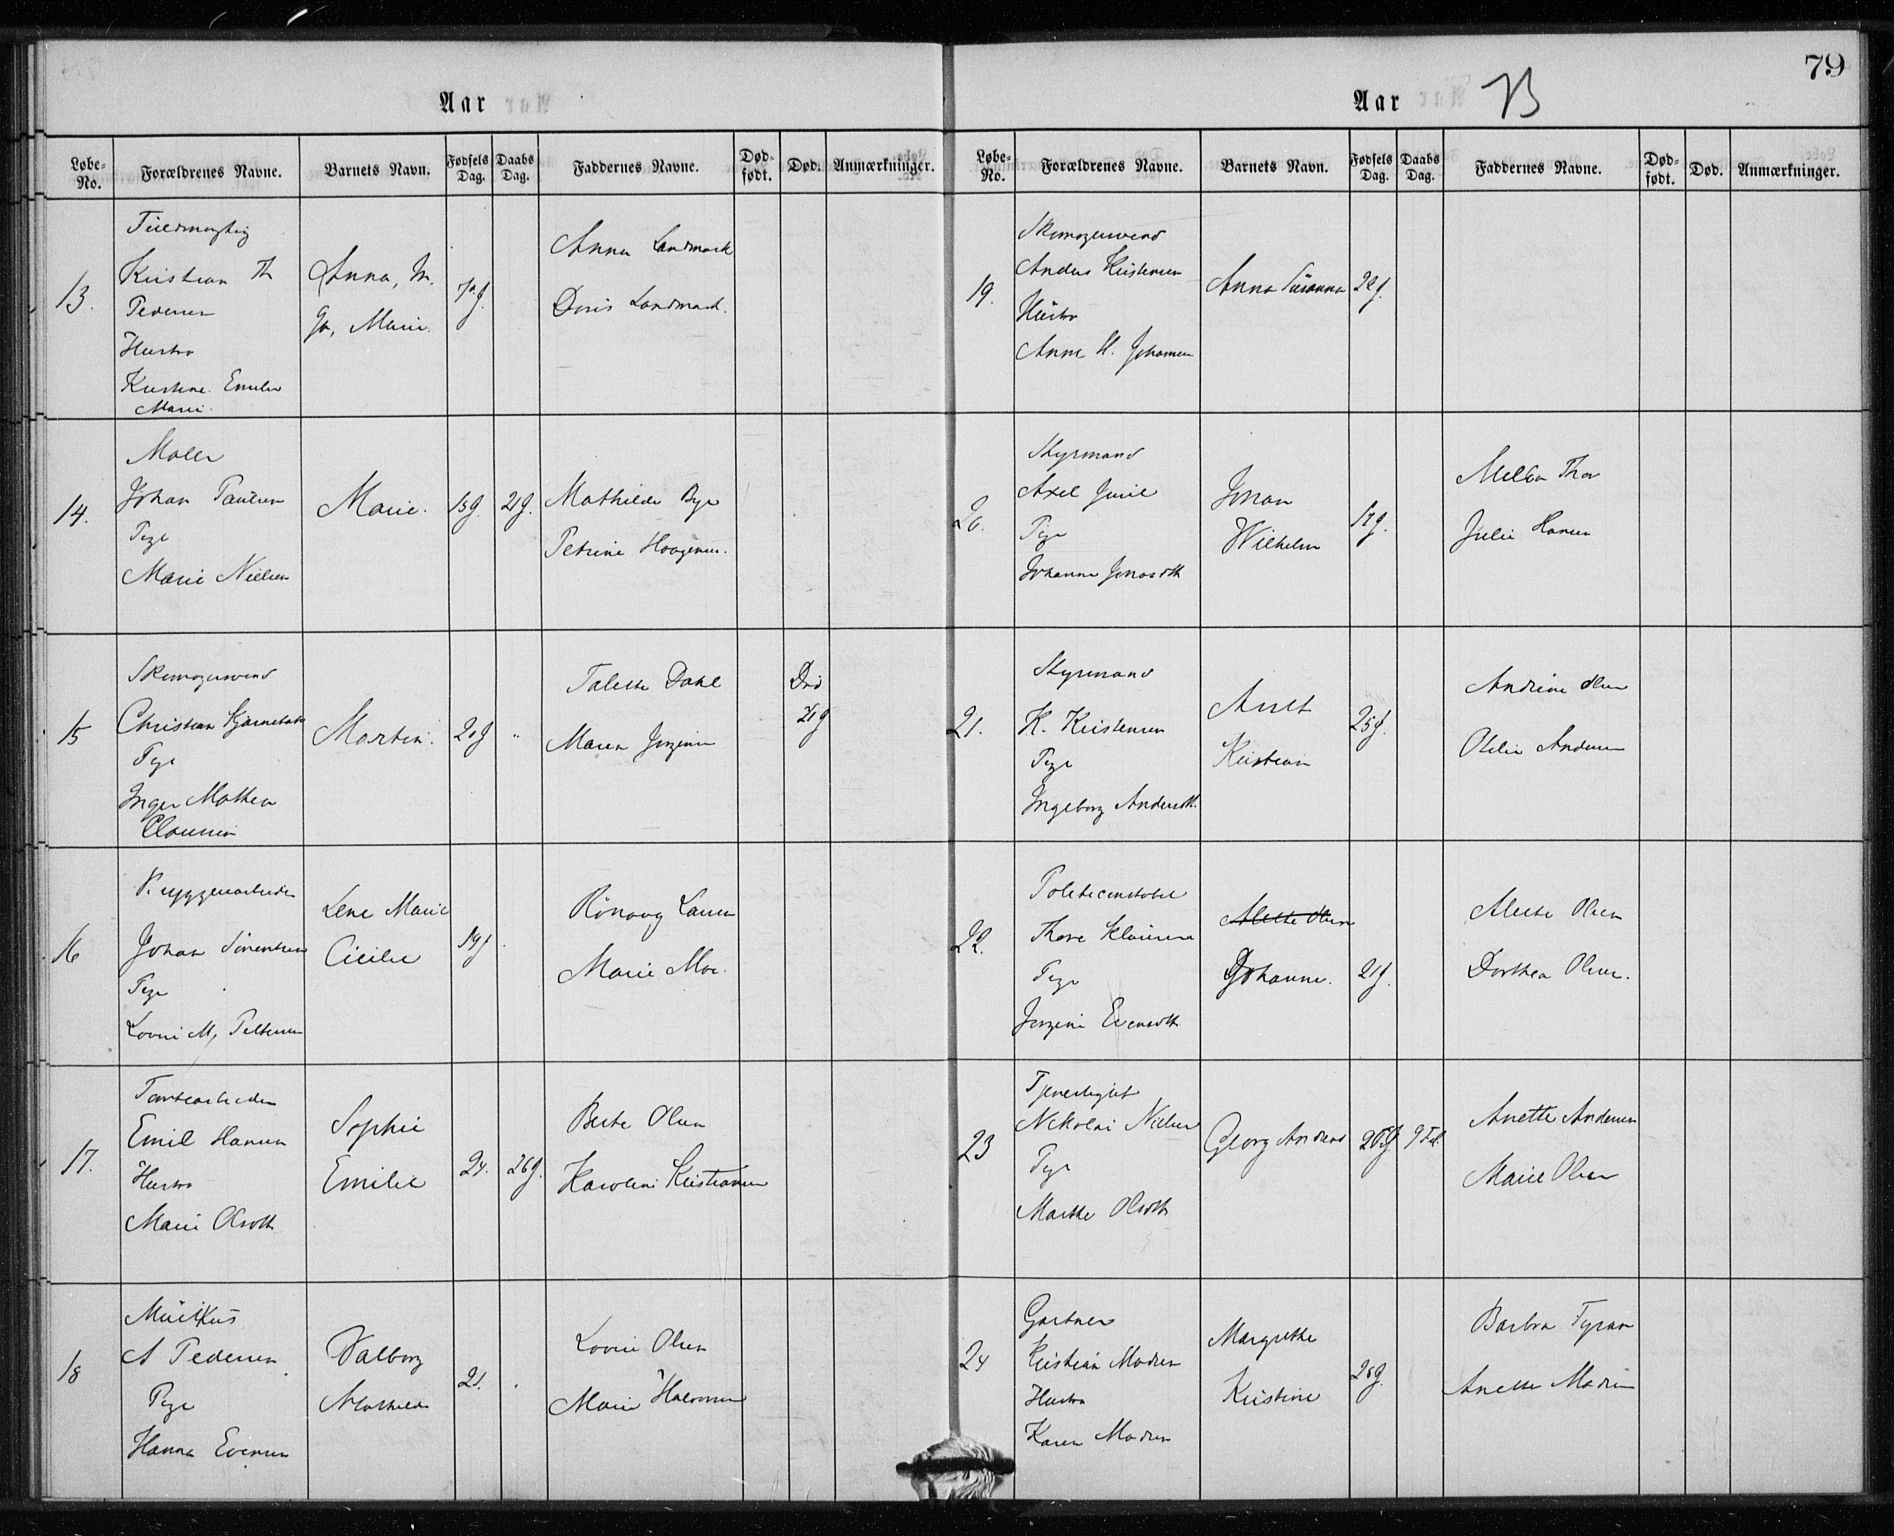 79
Aar
Løbe-No. Forældrenes Navne. Barnets Navn. Fødsels Dag. Daabs Dag. Faddernes Navne. Død-født. Død. Anmærkninger.
13.
Kristian Th
Pedersen
Hustro
Kristine Emilie
Marie
Anna, M.
Marie.
Anna Landmark
Doris Landmark.
14.
Maler
Johan Paulsen
Pige
Marie Nielsen
Marie.
15J.
21J.
Mathilde Bye
Petrine Haagensen.
15
Skomagersvend
Christian
Pige
Inger Mathea
Clausen
Martin.
20J
Talette Dahl
Maren Jørgensen
Død
21J
16
Bryggearbeider
Johan Sørensen
Pige
Lovise M. Pettersen
Lene Marie
Cicilie
19J
Rønaug Larsen
Marie Moe.
17.
Emil Hansen
Hustro
Marie Olsdtr
Sophie
Emilie
24.
26J.
Berte Olsen
Karoline Kristiansen
18
Musikus
A Pedersen
Pige
Hanna Evensen
Valborg
Mathilde
21.
Lovise Olsen
Marie Halvorsen
Aar
73
Løbe-No. Forældrenes Navne. Barnets Navn. Fødsels Dag. Daabs Dag. Faddernes Navne. Død-født. Død. Anmærkninger.
19.
Skomagersvend
Anders Kristensen
Hustro
Anne H. Johansen
Anna Susanna
22J.
20.
Styrmand
Axel Juul
Pige
Johanne Jonasdtr
Johan
Wilhelm
17J.
Melba Thor
Julie Hansen
21.
Styrmand
K. Kristensen
Pige
Ingeborg Andersdtr.
Anet
Kristian
25J.
Andrine Olsen
Otelie Andersen
22.
Politiconstabel
Thore Klausen
Pige
Jørgine Evensdtr
Alette Olsen
Johanne.
21J.
Alette Olsen
Dorthea Olsen.
23
Nikolai Nielsen
Pige
Marthe Olsdtr
Georg Andreas
9 Feb.
Anette Andersen
Marie Olsen
24
Gartner
Kristian Madsen
Hustro
Karen Madsen
Margrethe
Kristine
26J.
Barbra
Anette Madsen